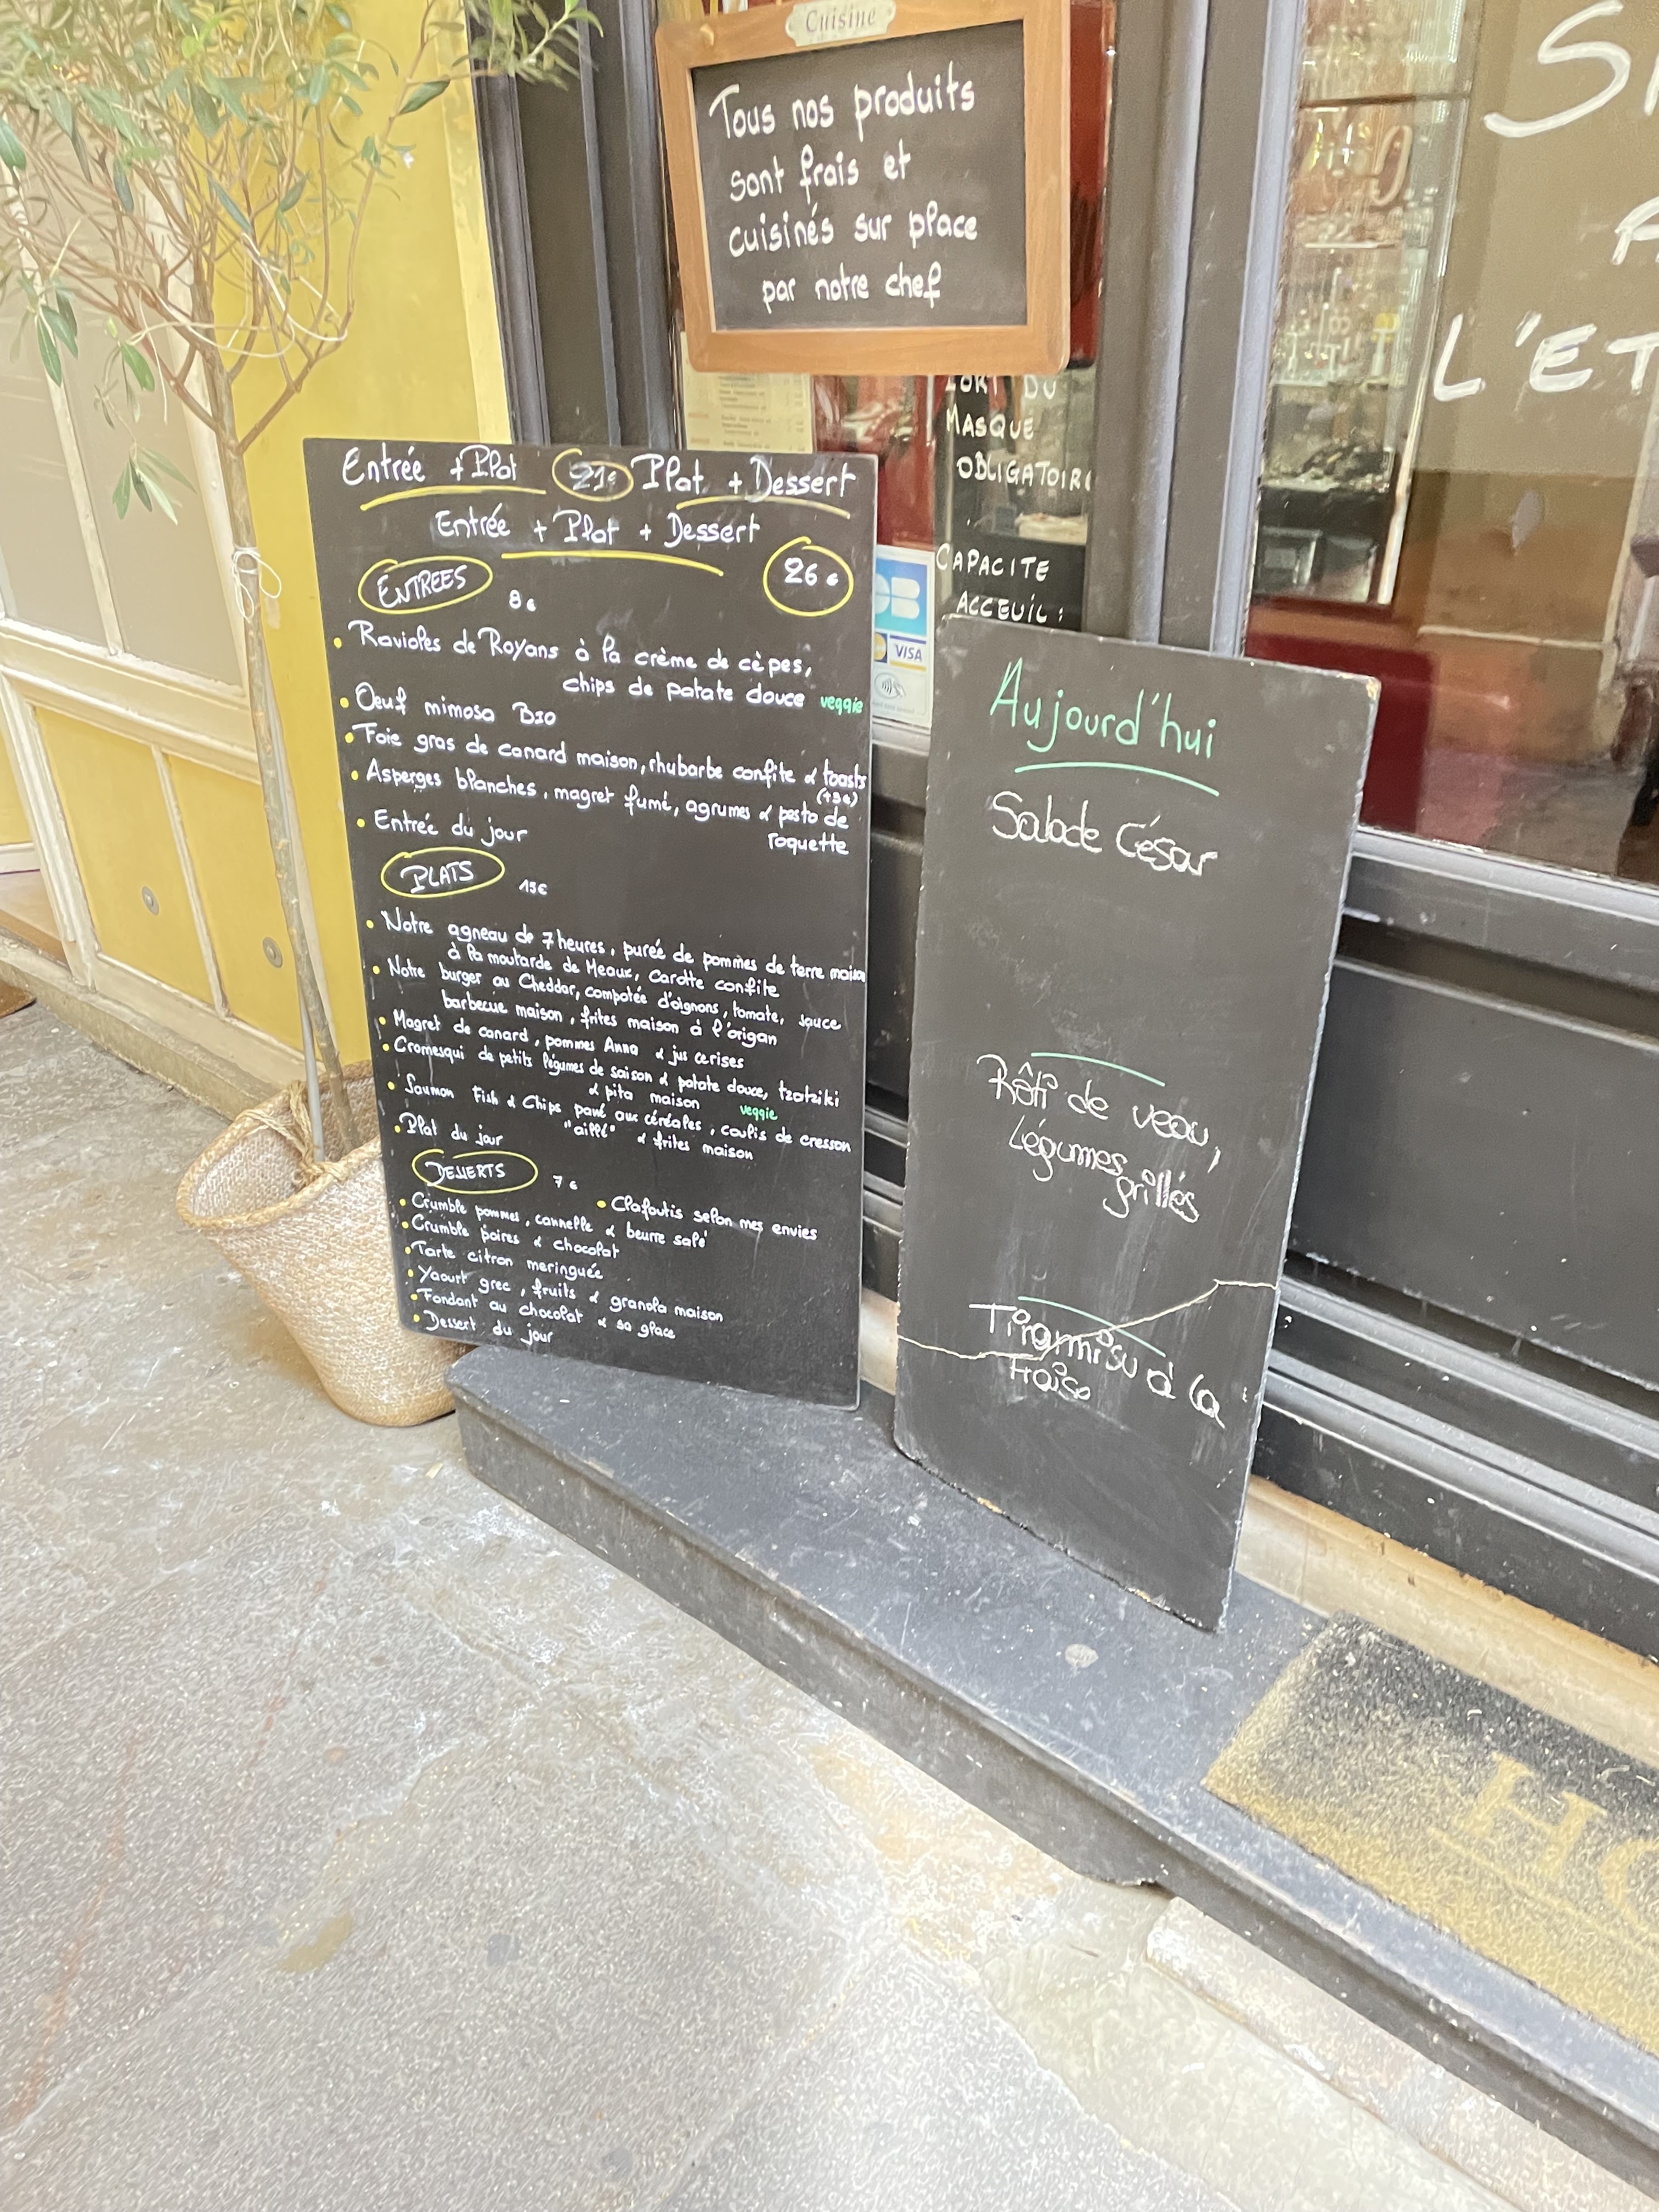 Cuisine
Tous nos produits
sont frais et
cuisinés sur place
par notre chef
MASQUE
OBLIGATOIRE
CAPACITE
ACCEUIL :
L'ET
VISA
Entrée + Plat 21€ Plat + Dessert
Entrée + Plat + Dessert
26 €
ENTREES 8 €
• Ravioles de Royans à la crème de cèpes,
chips de patate douce veggie
• Oeuf mimosa BIO
• Foie gras de canard maison, rhubarbe confite & toasts
(+3€)
• Asperges blanches, magret fumé, agrumes & pesto de
roquette
• Entrée du jour
PLATS 15€
• Notre agneau de 7 heures, purée de pommes de terre maison
à la moutarde de Meaux, carotte confite
• Notre burger au Cheddar, compotée d'oignons, tomate, sauce
barbecue maison, frites maison à l'origan
• Magret de canard, pommes Anna & jus cerises
• Cromesqui de petits légumes de saison & patate douce, tzatziki
& pita maison veggie
• Saumon Fish & Chips pané aux céréales, coulis de cresson
"aillé" & frites maison
• Plat du jour
DESSERTS 7 €
• Crumble pommes, cannelle & beurre salé
• Clafoutis selon mes envies
• Crumble poires & chocolat
• Tarte citron meringuée
• Yaourt grec, fruits & granola maison
• Fondant au chocolat & sa glace
• Dessert du jour
Aujourd'hui
Salade César
Rôti de veau,
Légumes
grillés
Tiramisu à la
fraise
HO